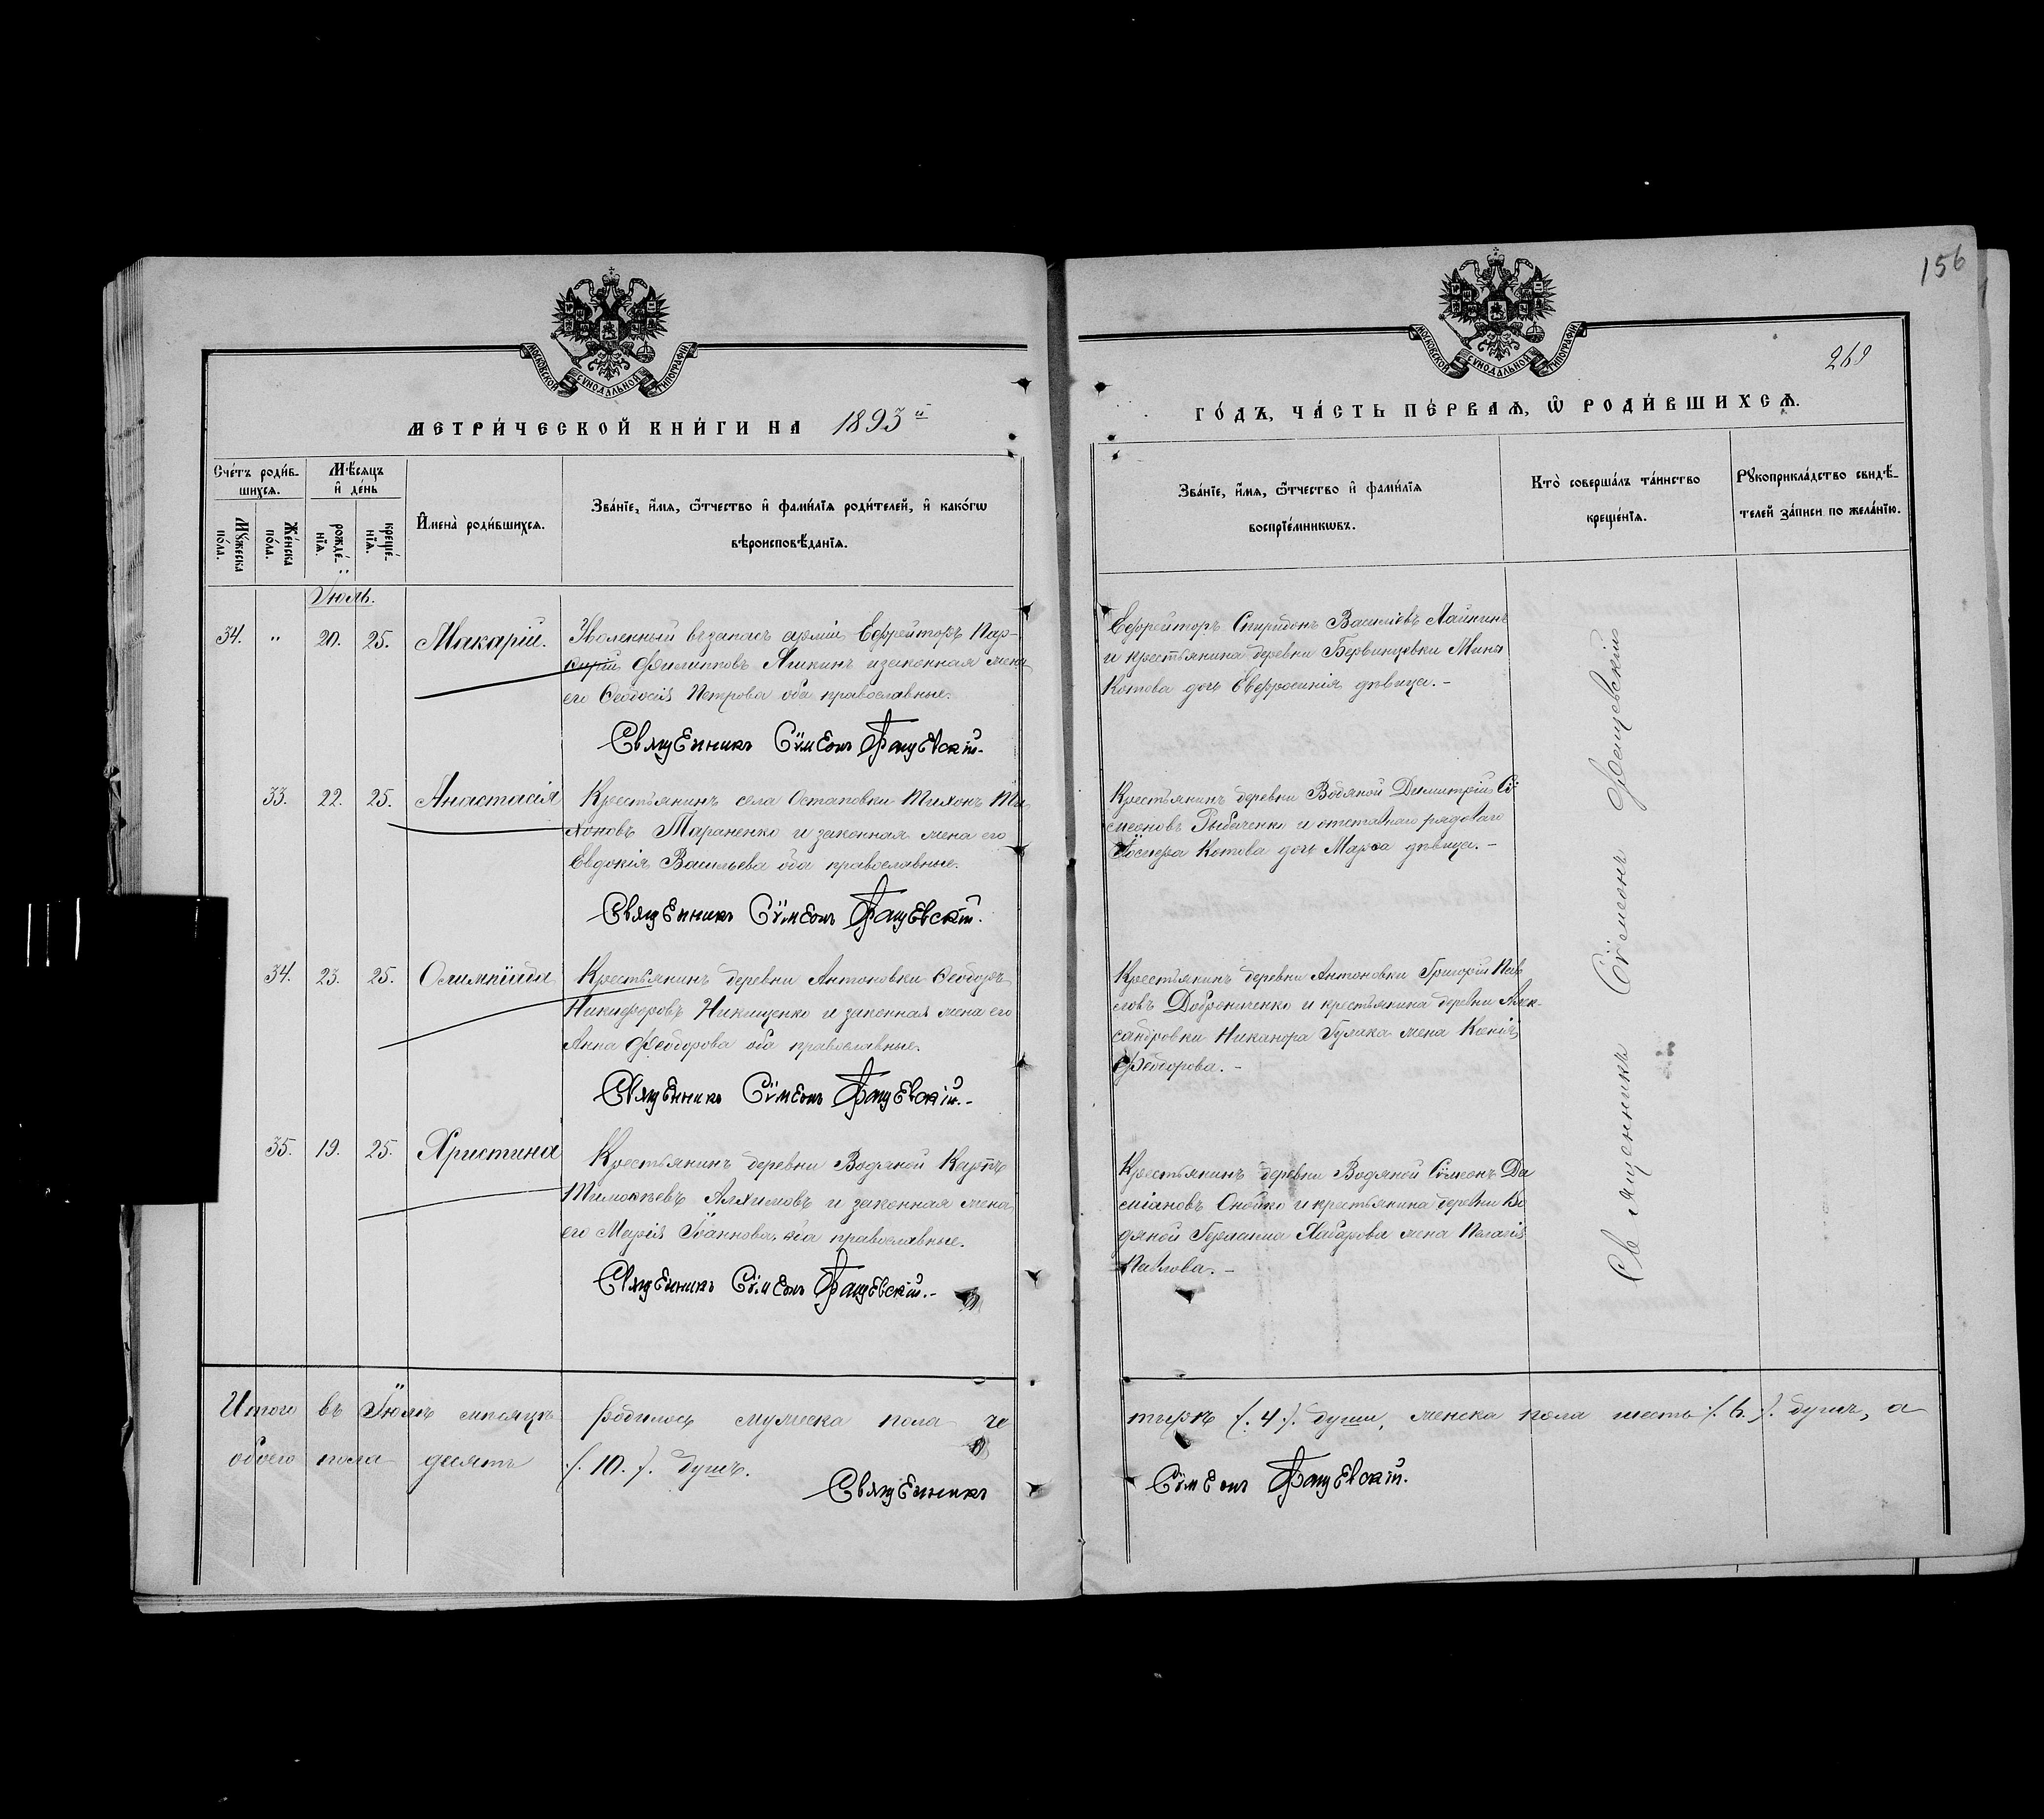 156
МОСКОВСКОЙ СУНОДАЛЬНОЙ ТИПОГРАФІИ
МОСКОВСКОЙ СУНОДАЛЬНОЙ ТИПОГРАФІИ
269
МЕТРИ́ЧЕСКОЙ КНИ́ГИ НА 1893й
ГО́ДЪ, ЧА́СТЬ ПЕ́РВАЯ, Ѡ РОДИ́ВШИХСЯ.
Сче́тъ роди́в-
шихся.
Мꙋ́жеска по́ла.
Же́нска по́ла.
Мѣ́сяцъ
и҆ де́нь
рожде́-
нїя.
креще́-
нїя.
И҆мена̀ роди́вшихся.
Зва́нїе, и҆́мя, ѻ҆́тчество и҆ фами́лїя роди́телей, и҆ како́гѡ
вѣроисповѣ́данїя.
Зва́нїе, и҆́мя, ѻ҆́тчество и҆ фами́лїя
воспрїе́мникѡвъ.
Кто̀ соверша́лъ та́инство
креще́нїя.
Рꙋкоприкла́дство свидѣ́-
телей за́писи по жела́нїю.
Іюль.
34. " 20. 25. Макарій. Уволенный въ запасъ арміи Ефрейторъ Пар-
Филипповъ Яшкинъ и законная жена
его Ѳеодосія Петрова оба православные.
Священникъ Сѵмеонъ Фащевскій.
Ефрейторъ Спиридонъ Васильевъ
и крестьянина деревни Мины
Котова дочь Евфросинія дѣвица.
33. 22. 25. Анастасія Крестьянинъ села Остаповки Тихонъ Ти-
хоновъ Тараненко и законная жена его
Евдокія Васильева оба православные.
Священникъ Сѵмеонъ Фащевскій.
Крестьянинъ деревни Водяной Димитрій Сѵ-
меоновъ Рыбаченко и отставнаго рядоваго
Котова дочь Марѳа дѣвица.
34. 23. 25. Олимпіада Крестьянинъ деревни Антоновки Ѳеодоръ
Никифоровъ Никищенко и законная жена его
Анна Феодорова оба православные.
Священникъ Сѵмеонъ Фащевскій.
Крестьянинъ деревни Антоновки Григорій Пав-
ловъ и крестьянина деревни Алек-
сандровки Никанора Гулака жена Ксенія
Феодорова.
35. 19. 25. Христина Крестьянинъ деревни Водяной Карпъ
Тимоѳеевъ Алхимовъ и законная жена
его Марія Іоаннова оба православные.
Священникъ Сѵмеонъ Фащевскій.
Крестьянинъ деревни Водяной Сѵмеонъ Да-
міановъ Онойко и крестьянина деревни Во-
дяной Германа Хабарова жена Пелагія
Павлова.
Священникъ Сѵмеонъ Фащевскій
Итого въ Іюлѣ мѣсяцѣ родилось мужеска пола че-
тыре (4). души, женска пола шесть (6.). душъ, а
обоего пола десять (10.). душъ.
Священникъ Сѵмеонъ Фащевскій.